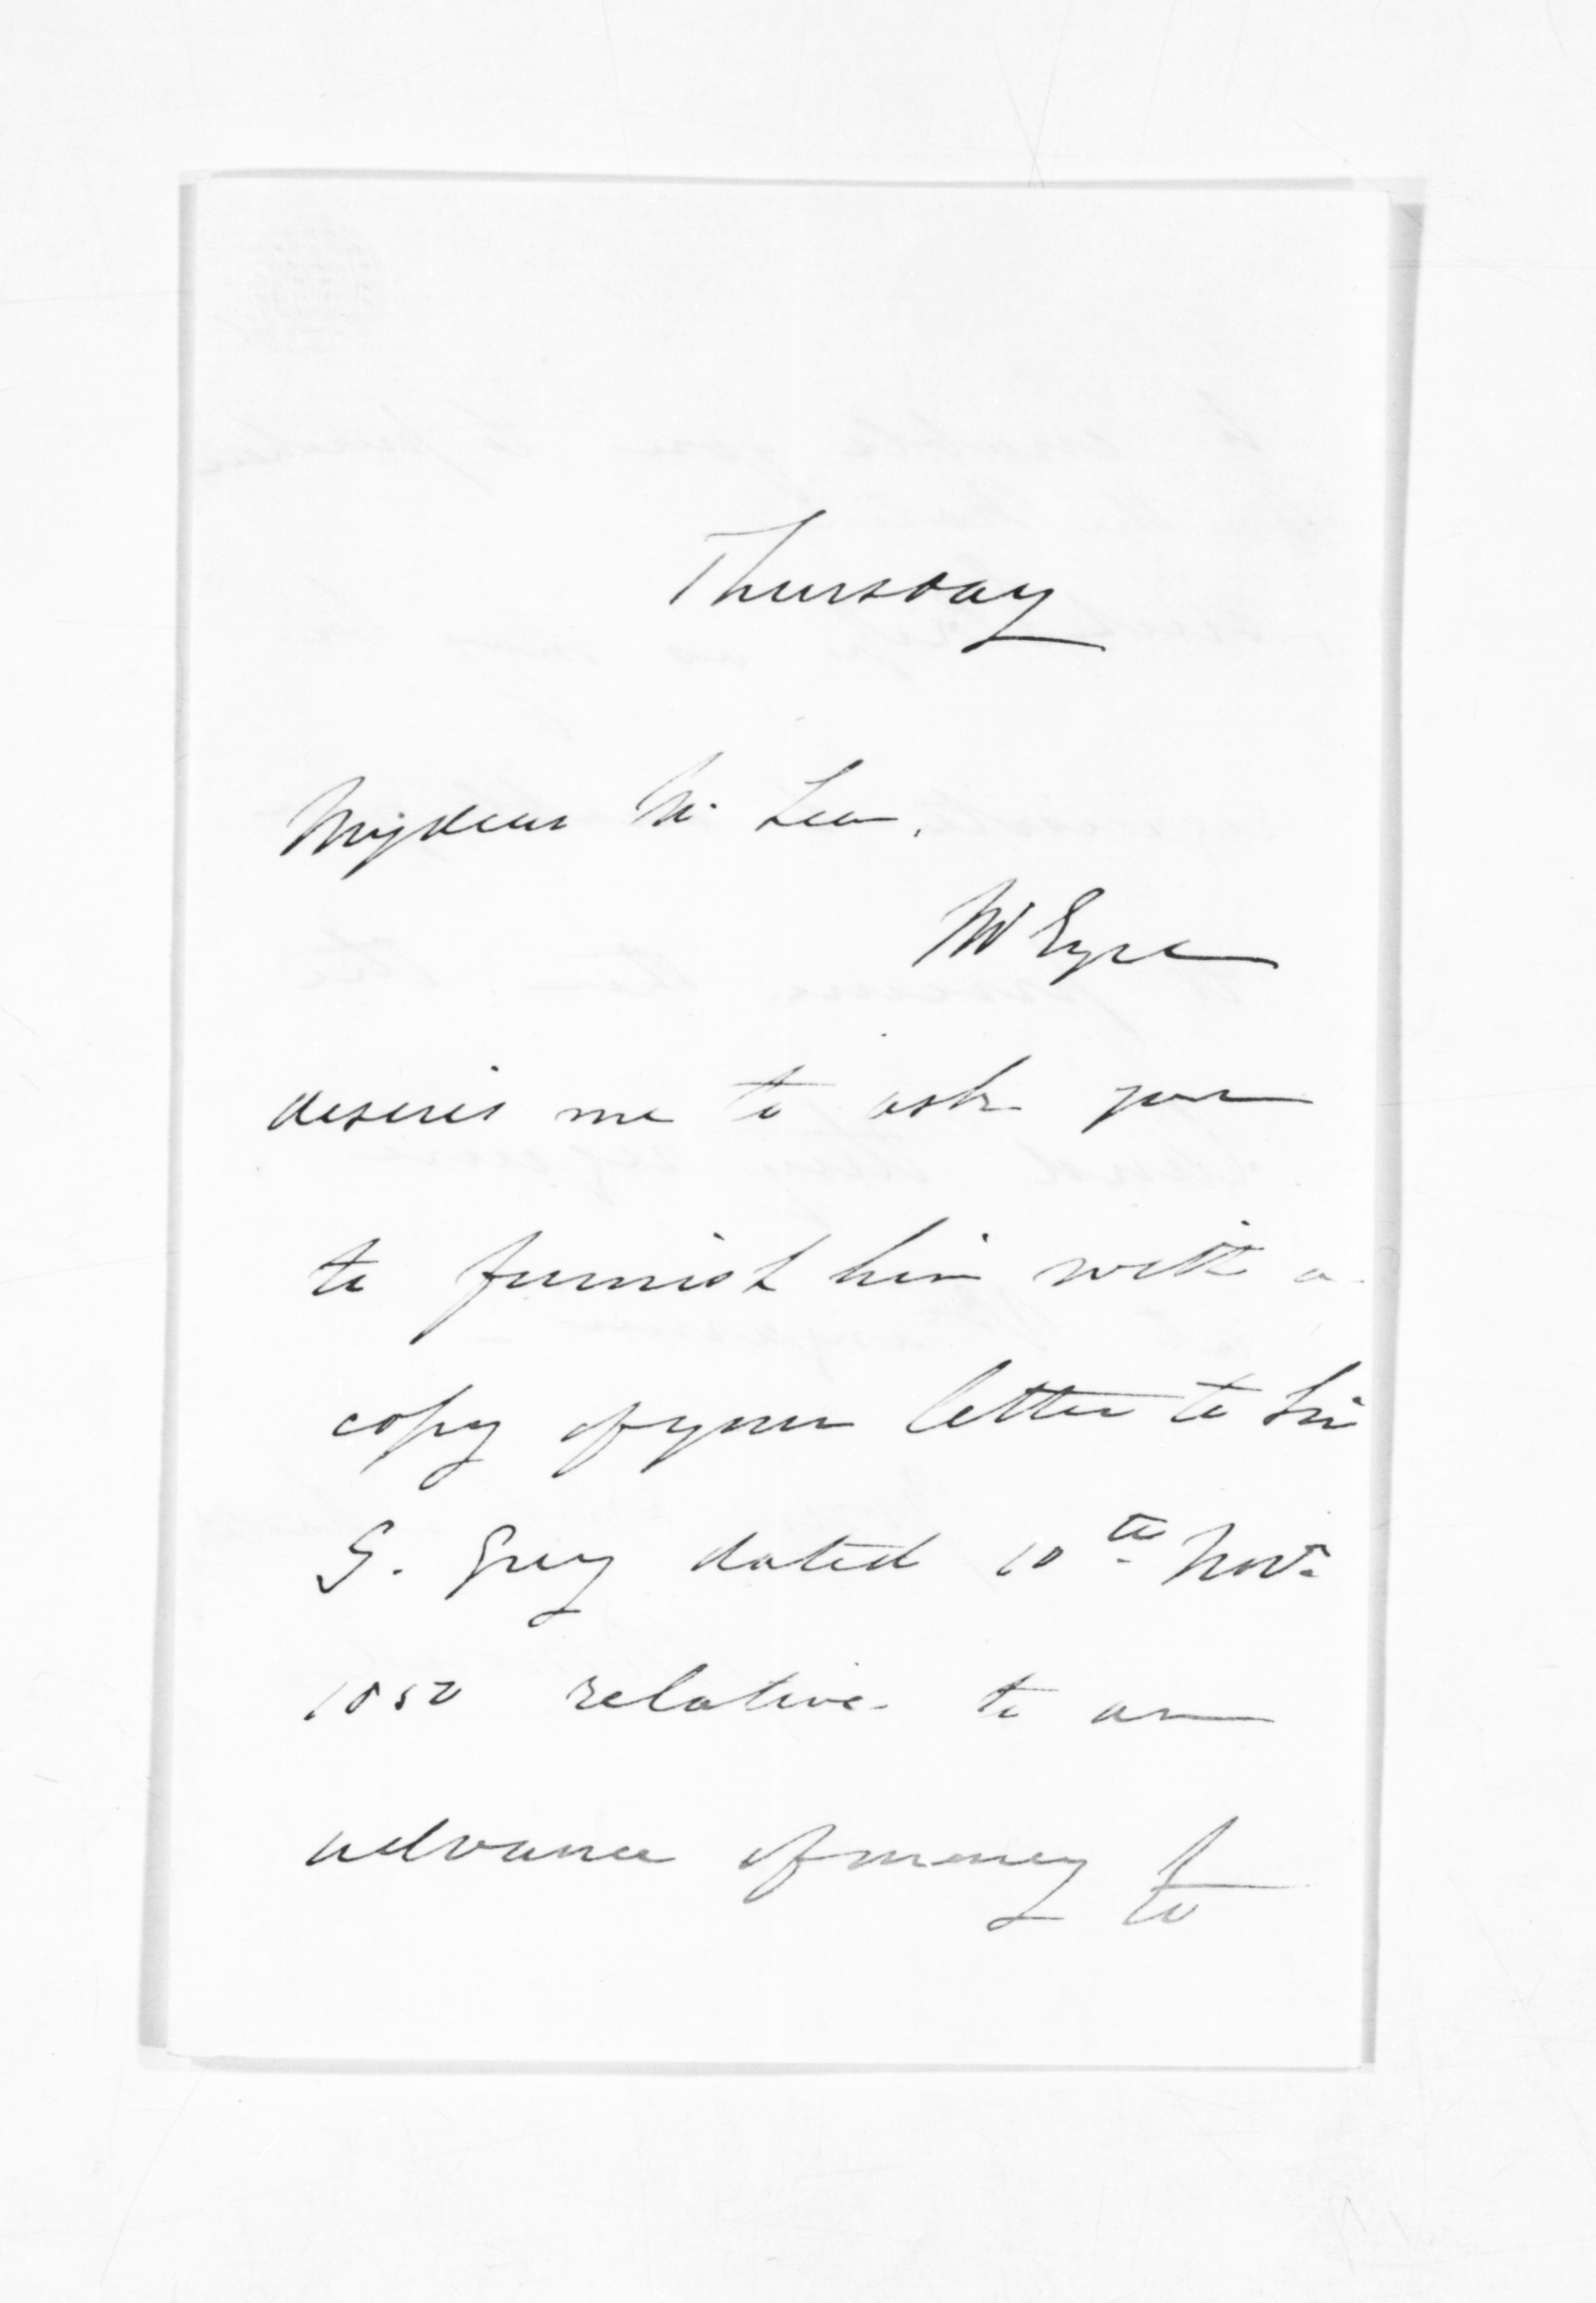 Thursday
My dear Mc Lean,
Mr Eyre
desires me to ask you
to furnish him with a
copy of your letter to Sir
G. Grey dated 10th Novr
1850 relative to an
advance of money to